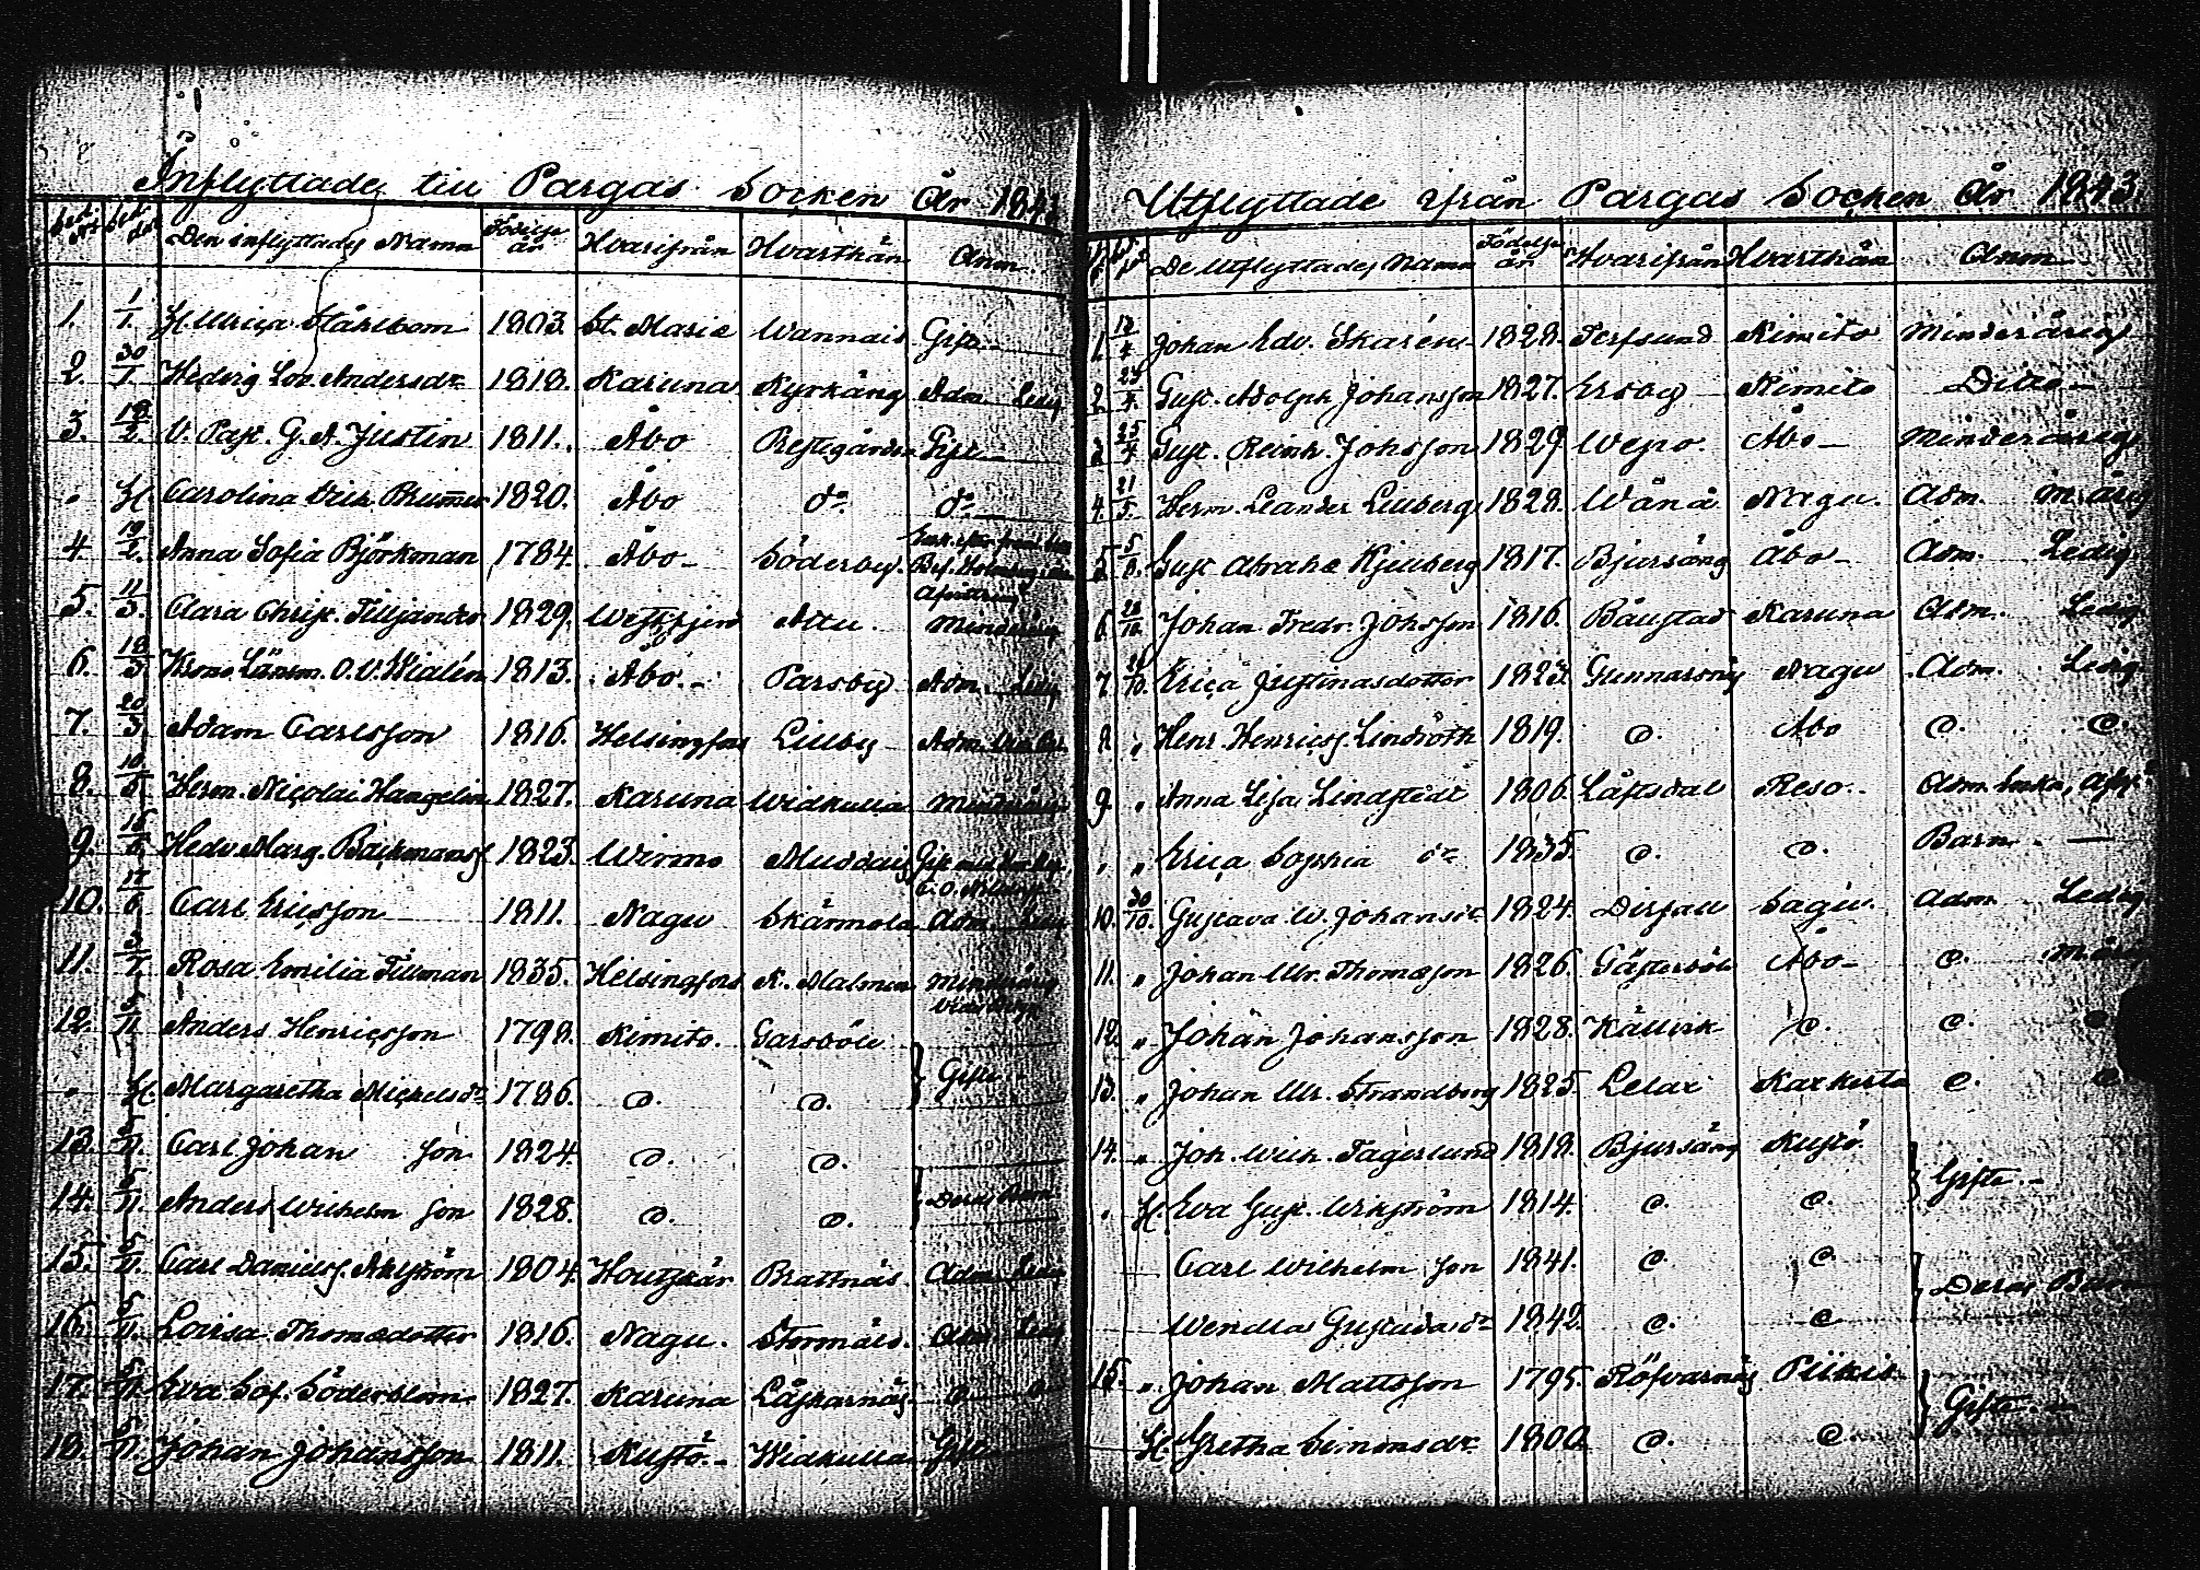 Inflyttade till Pargas Socken År 1843
Den inflyttades Namn Födelse år Hvarifrån Hvarthän Anm.
1. 1/1. H. Ulrica Stålbom 1803. St. Marie Wannais Gift
2. 30/1. Hedvig Lov. Andersdr 1818. Karuna Kyrkäng Adm. Ledig
3. 18/2. V. Past. G. A. Justin 1811. Åbo Prestgården Gift
" H. Carolina Brummer 1820. Åbo do do
4. 19/2. Anna Sofia Björkman 1784. Åbo Söderby.
5. 11/3. Clara Christ. Tilljander 1829. Westfjerd Attu. Minderårig
6. 18/3. Krono Länsm. O. V. Wialén 1813. Åbo. Parsby Adm. Ledig
7. 20/3. Adam Carlsson 1816. Helsingfors Lillby Adm.
8. 10/5. Herm. Nicolai Hangelin 1827. Karuna Widkulla Minderårig
9. Hedv. Marg. Backmansf 1823. Wirmo Muddais Gift
10. 17/6. Carl Ericsson 1811. Nagu Skärmola Adm. Ledig
11. Rosa Emilia Tillman 1835. Helsingfors K. Malmen Minderårig
12. 5/11. Anders Henricsson 1798. Kimito. Garsböle
" H. Margaretha Michelsdr 1786. d. d. } Gifte.
13. 5/11. Carl Johan son 1824. d. d.
14. 5/11. Anders Wilhelm son 1828. d. d. } Deras Barn
15. 5/11. Carl Danielss. Ahlström 1804. Houtskär Brattnäs. Adm. Ledig
16. 5/11. Lovisa Thomædotter 1816. Nagu. Stormäls. Adm. Ledig
17. 5/11. Eva Sof. Söderblom 1827. Karuna Låskarnäs d d
18. 5/11. Johan Johansson 1811. Kustö. Widkulla Gift
Utflyttade ifrån Pargas Socken År 1843.
De Utflyttades Namn Födelse år Hvarifrån Hvarthän Anm.
1. 12/4 Johan Edv. Skarén 1828. Terfsund Kimito Minderårig
2. 23/4. Gust. Adolph Johansson 1827. Ersby Kimito Ditto
3. 25/4 Gust. Reinh. Johsson 1829 Wepo. Åbo Minderårig
4. 21/5. Herm. Leander Lillberg 1828. Wånå Nagu. Adm. M. årig
5. Gust Abrah. Kjellberg 1817. Bjursäng Åbo Adm. Ledig
6. Johan Fredr. Johsson 1816. Båustad Karuna Adm. Ledig
7. Erica Justinasdotter 1823. Gunnarsnäs Nagu Adm. Ledig
8. " Henr. Henricss. Lindroth 1819. d. Åbo d. d.
9. " Anna Lisa Lindstedt 1806. Låftsdal Reso. Adm. Enka,
" " Erica Sophia dr 1835. d. d. Barn.
10. 30/10. Gustava W. Johansdr 1824. Dirfall Sagu. Adm. Ledig
11. " Johan Ulr. Thomsson 1826. Gästerböle Åbo d. M. årig
12. " Johan Johansson 1828. Källvik d. d.
13. " Johan Ulr. Strandberg 1825. Lelax Karkerta d. d
14. " Joh. Wilh. Fagerlund 1818. Bjursäng Kustö.
" H. Eva Gust. Wikström 1814. d. d. } Gifte.
Carl Wilhelm son 1841. d. d
Wendla Gustava dr 1842. d. d } Deras Barn
15. " Johan Mattsson 1795. Röfvarnäs Piikis.
H. Gretha Simonsdr. 1800 d. d. } Gifte.